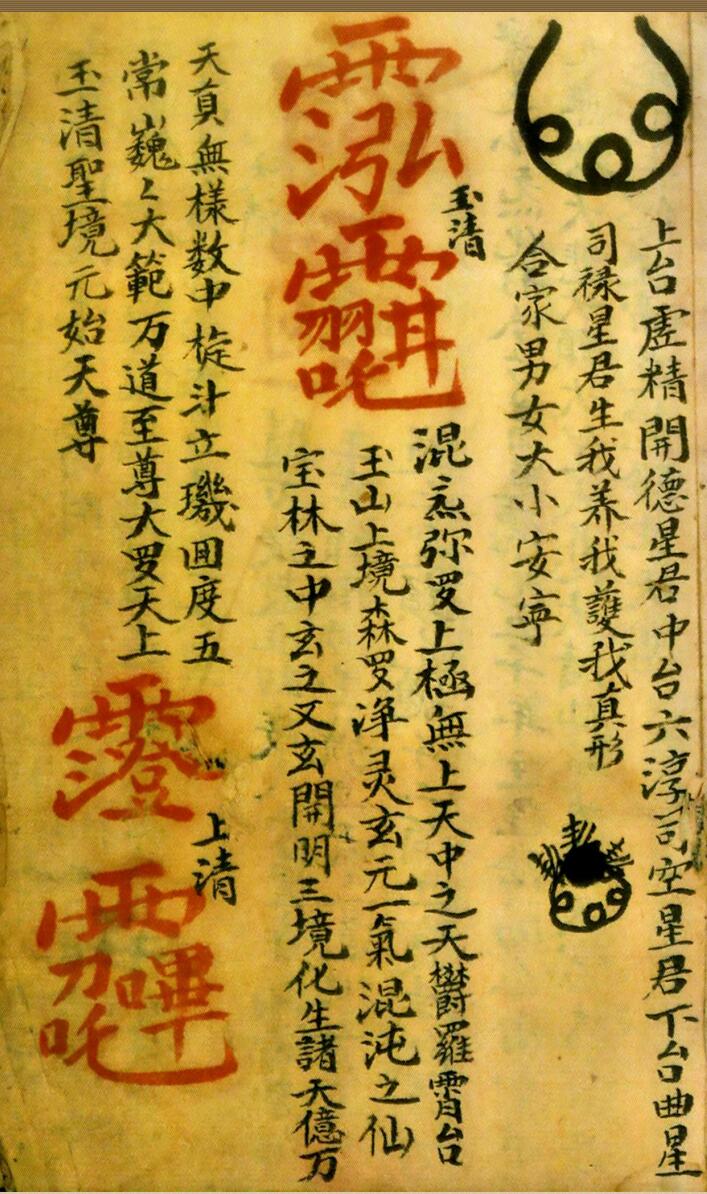 上台虛精開德星君中台六淳司空星君下台曲星
司禄星君生我养我護我真形
合家男女大小安寧
玉清
混炁弥罗上極無上天中之天欝羅霄台
玉山上境森罗净灵玄元一氣混沌之仙
宝林之中玄之又玄開明三境化生諸天億万
天真無様数中㨂斗立璣囬度五
常巍く大範万道至尊大罗天上
玉清聖境元始天尊
上清